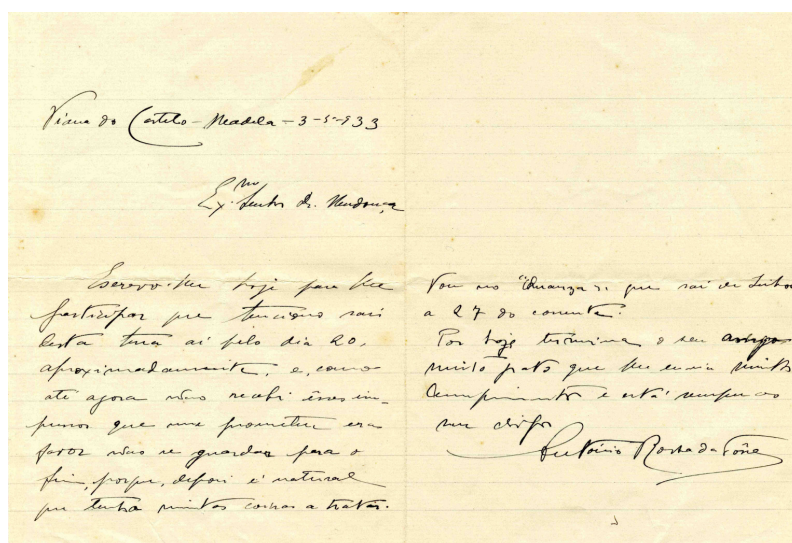 Viana do Castelo - Meadela - 3-5-933
Ex.mo Senhor Dr. Mendonça
Escrevo-lhe hoje para lhe
participar que tenciono sair
desta terra aí pelo dia 20,
aproximadamente, e, como
até agora não recebi êsses im-
pressos que me prometeu era
favor não se guardar para o
fim, porque, depois é natural
que tenha muitas coisas a tratar.
Vou no "Quanza" que sai de Lisboa
a 27 do corrente.
Por hoje termina o seu amigo
muito grato que lhe envia muitos
cumprimentos e está sempre ao
seu dispor
António Rocha da